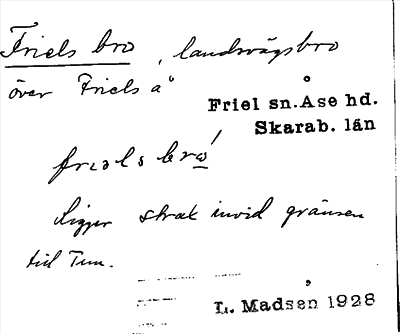 Friels bro, landsvägsbro
över Friels å
Friel sn. Åse hd.
Skarab. län
frials bro
Ligger strax invid gränsen
till Tun.
L. Madsen 1928